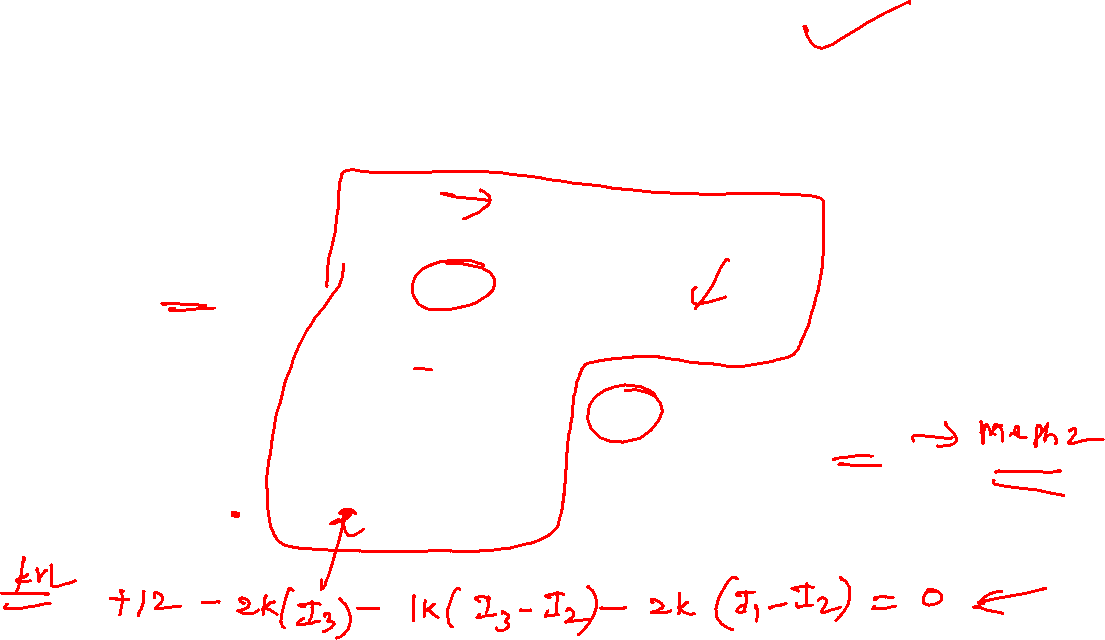 → mesh 2
KVL +12 - 2k(I₃) - 1k(I₃-I₂) - 2k(I₁-I₂) = 0 ←